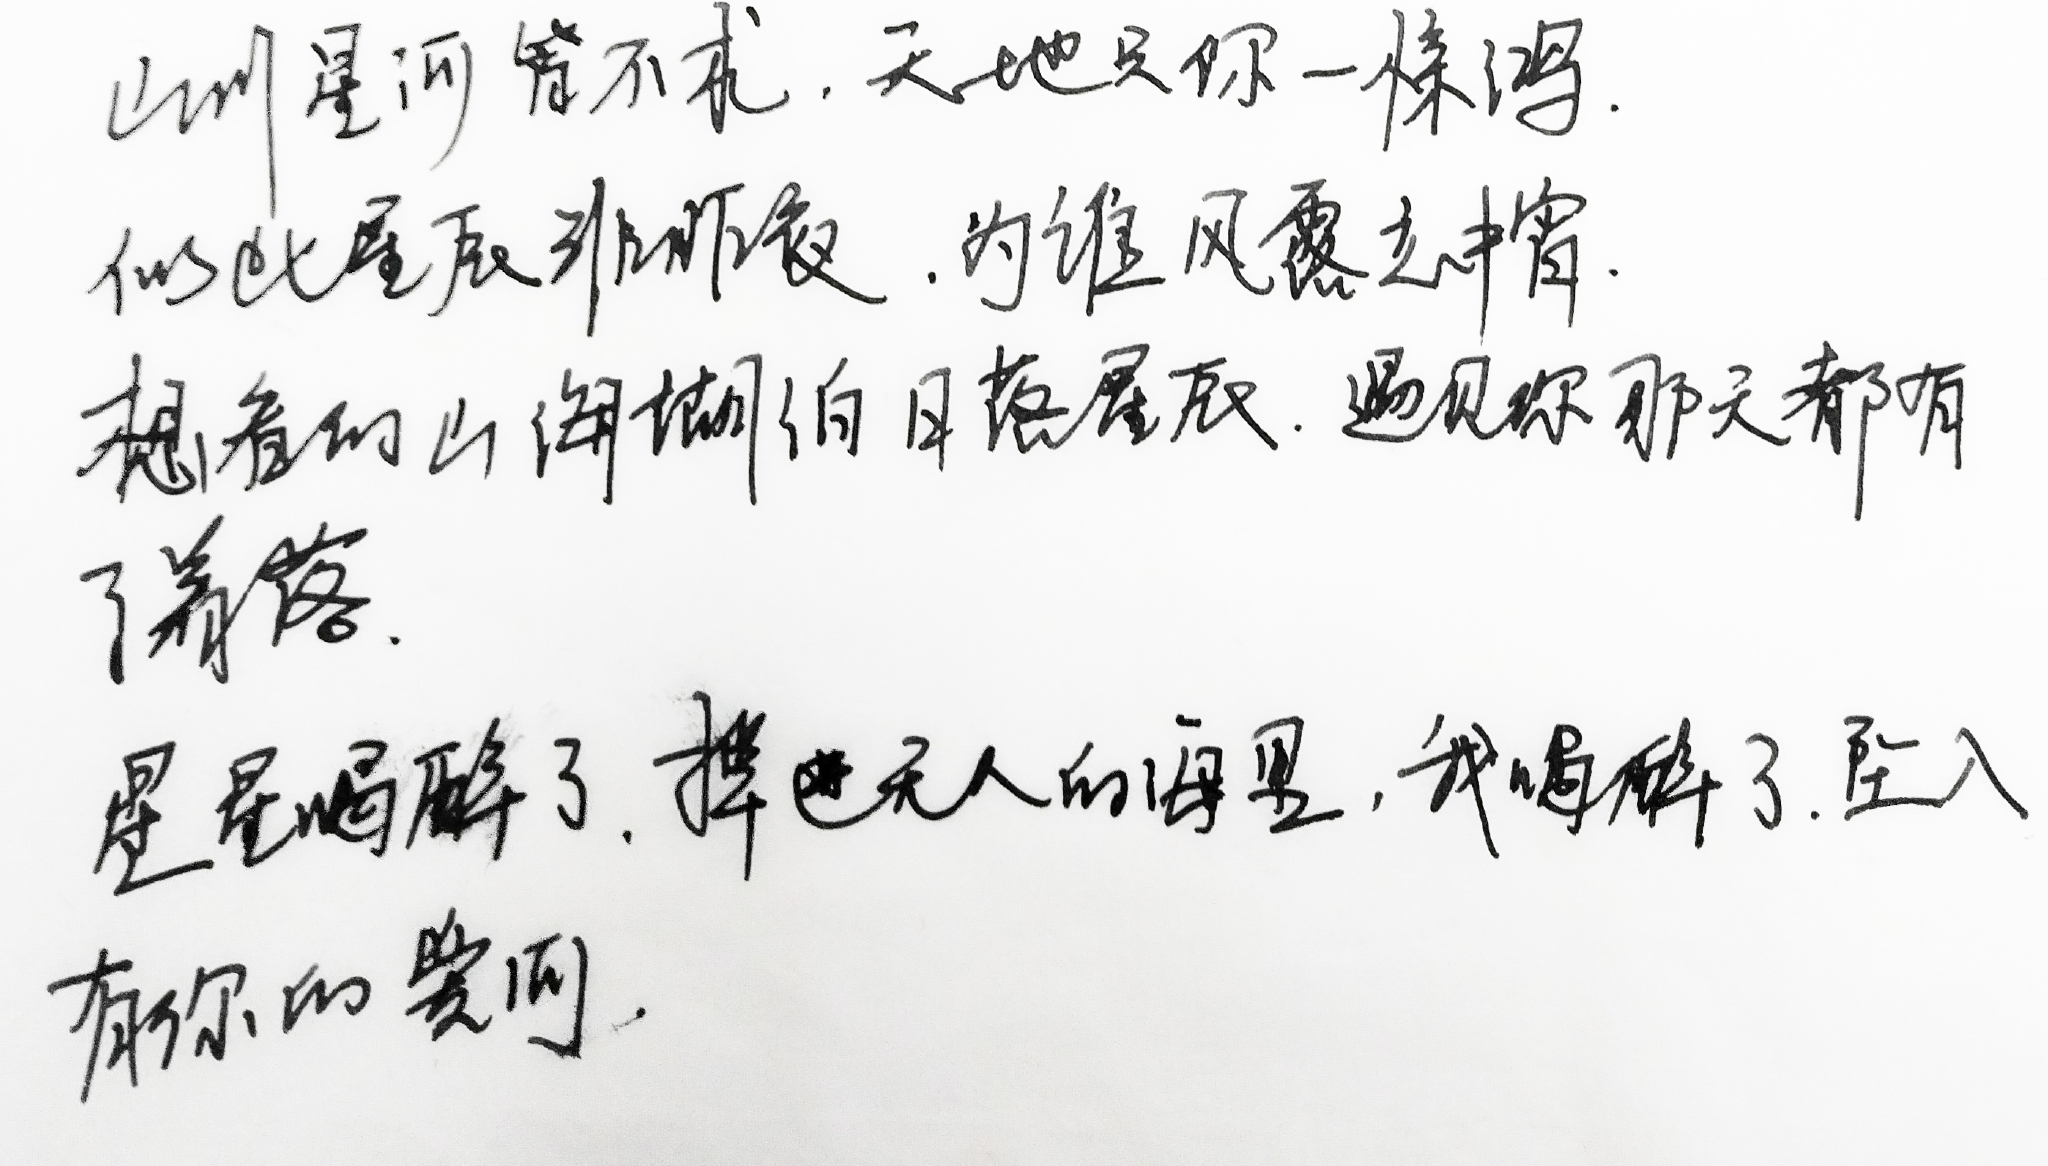 山川星河皆不求.天地只你一惊鸿.
似此星辰非昨夜.为谁风露立中宵.
想看的山海湖泊日落星辰.遇见你那天都有
了着落.
星星喝醉了.掉进无人的海里,我喝醉了.坠入
有你的星河.